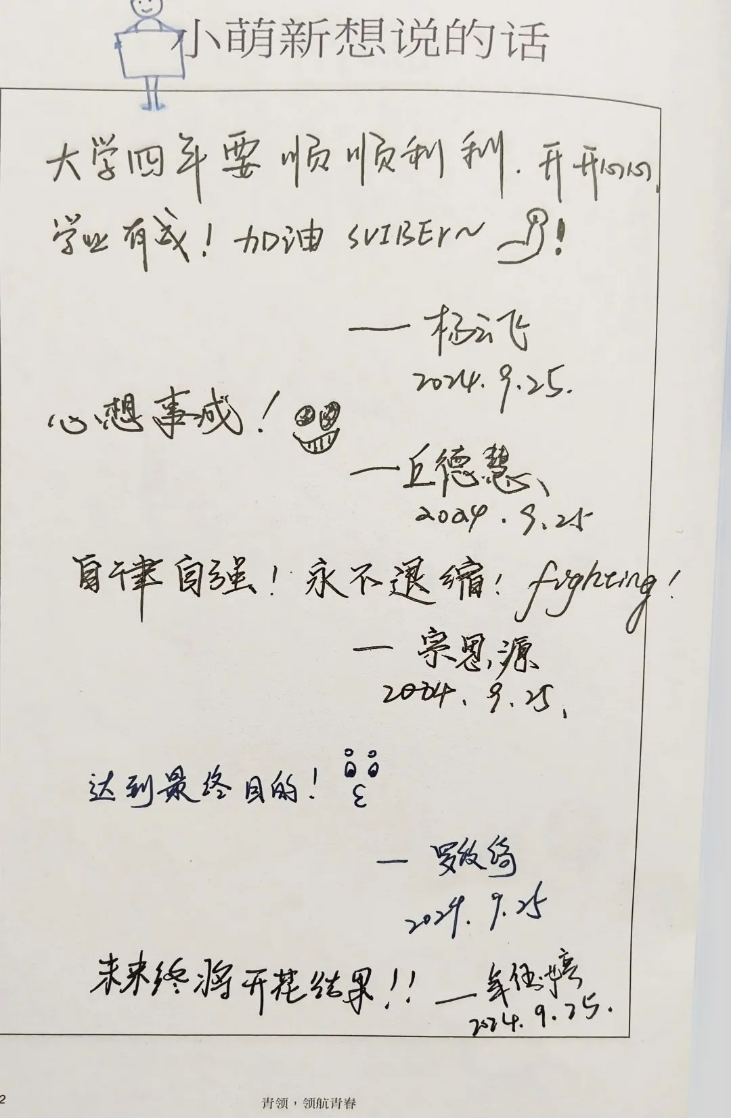 小萌新想说的话
大学四年要顺顺利利.开开心心,
学业有成!加油 SVIBEr~ !
— 杨云飞
2024.9.25.
心想事成!
—丘德慧、
2024.9.25
自律自强!永不退缩!fighting!
— 宗恩源
2024.9.25、
达到最终目的!
— 罗
2024.9.25
未来终将开花结果!! —
2024.9.25.
2
青领,领航青春